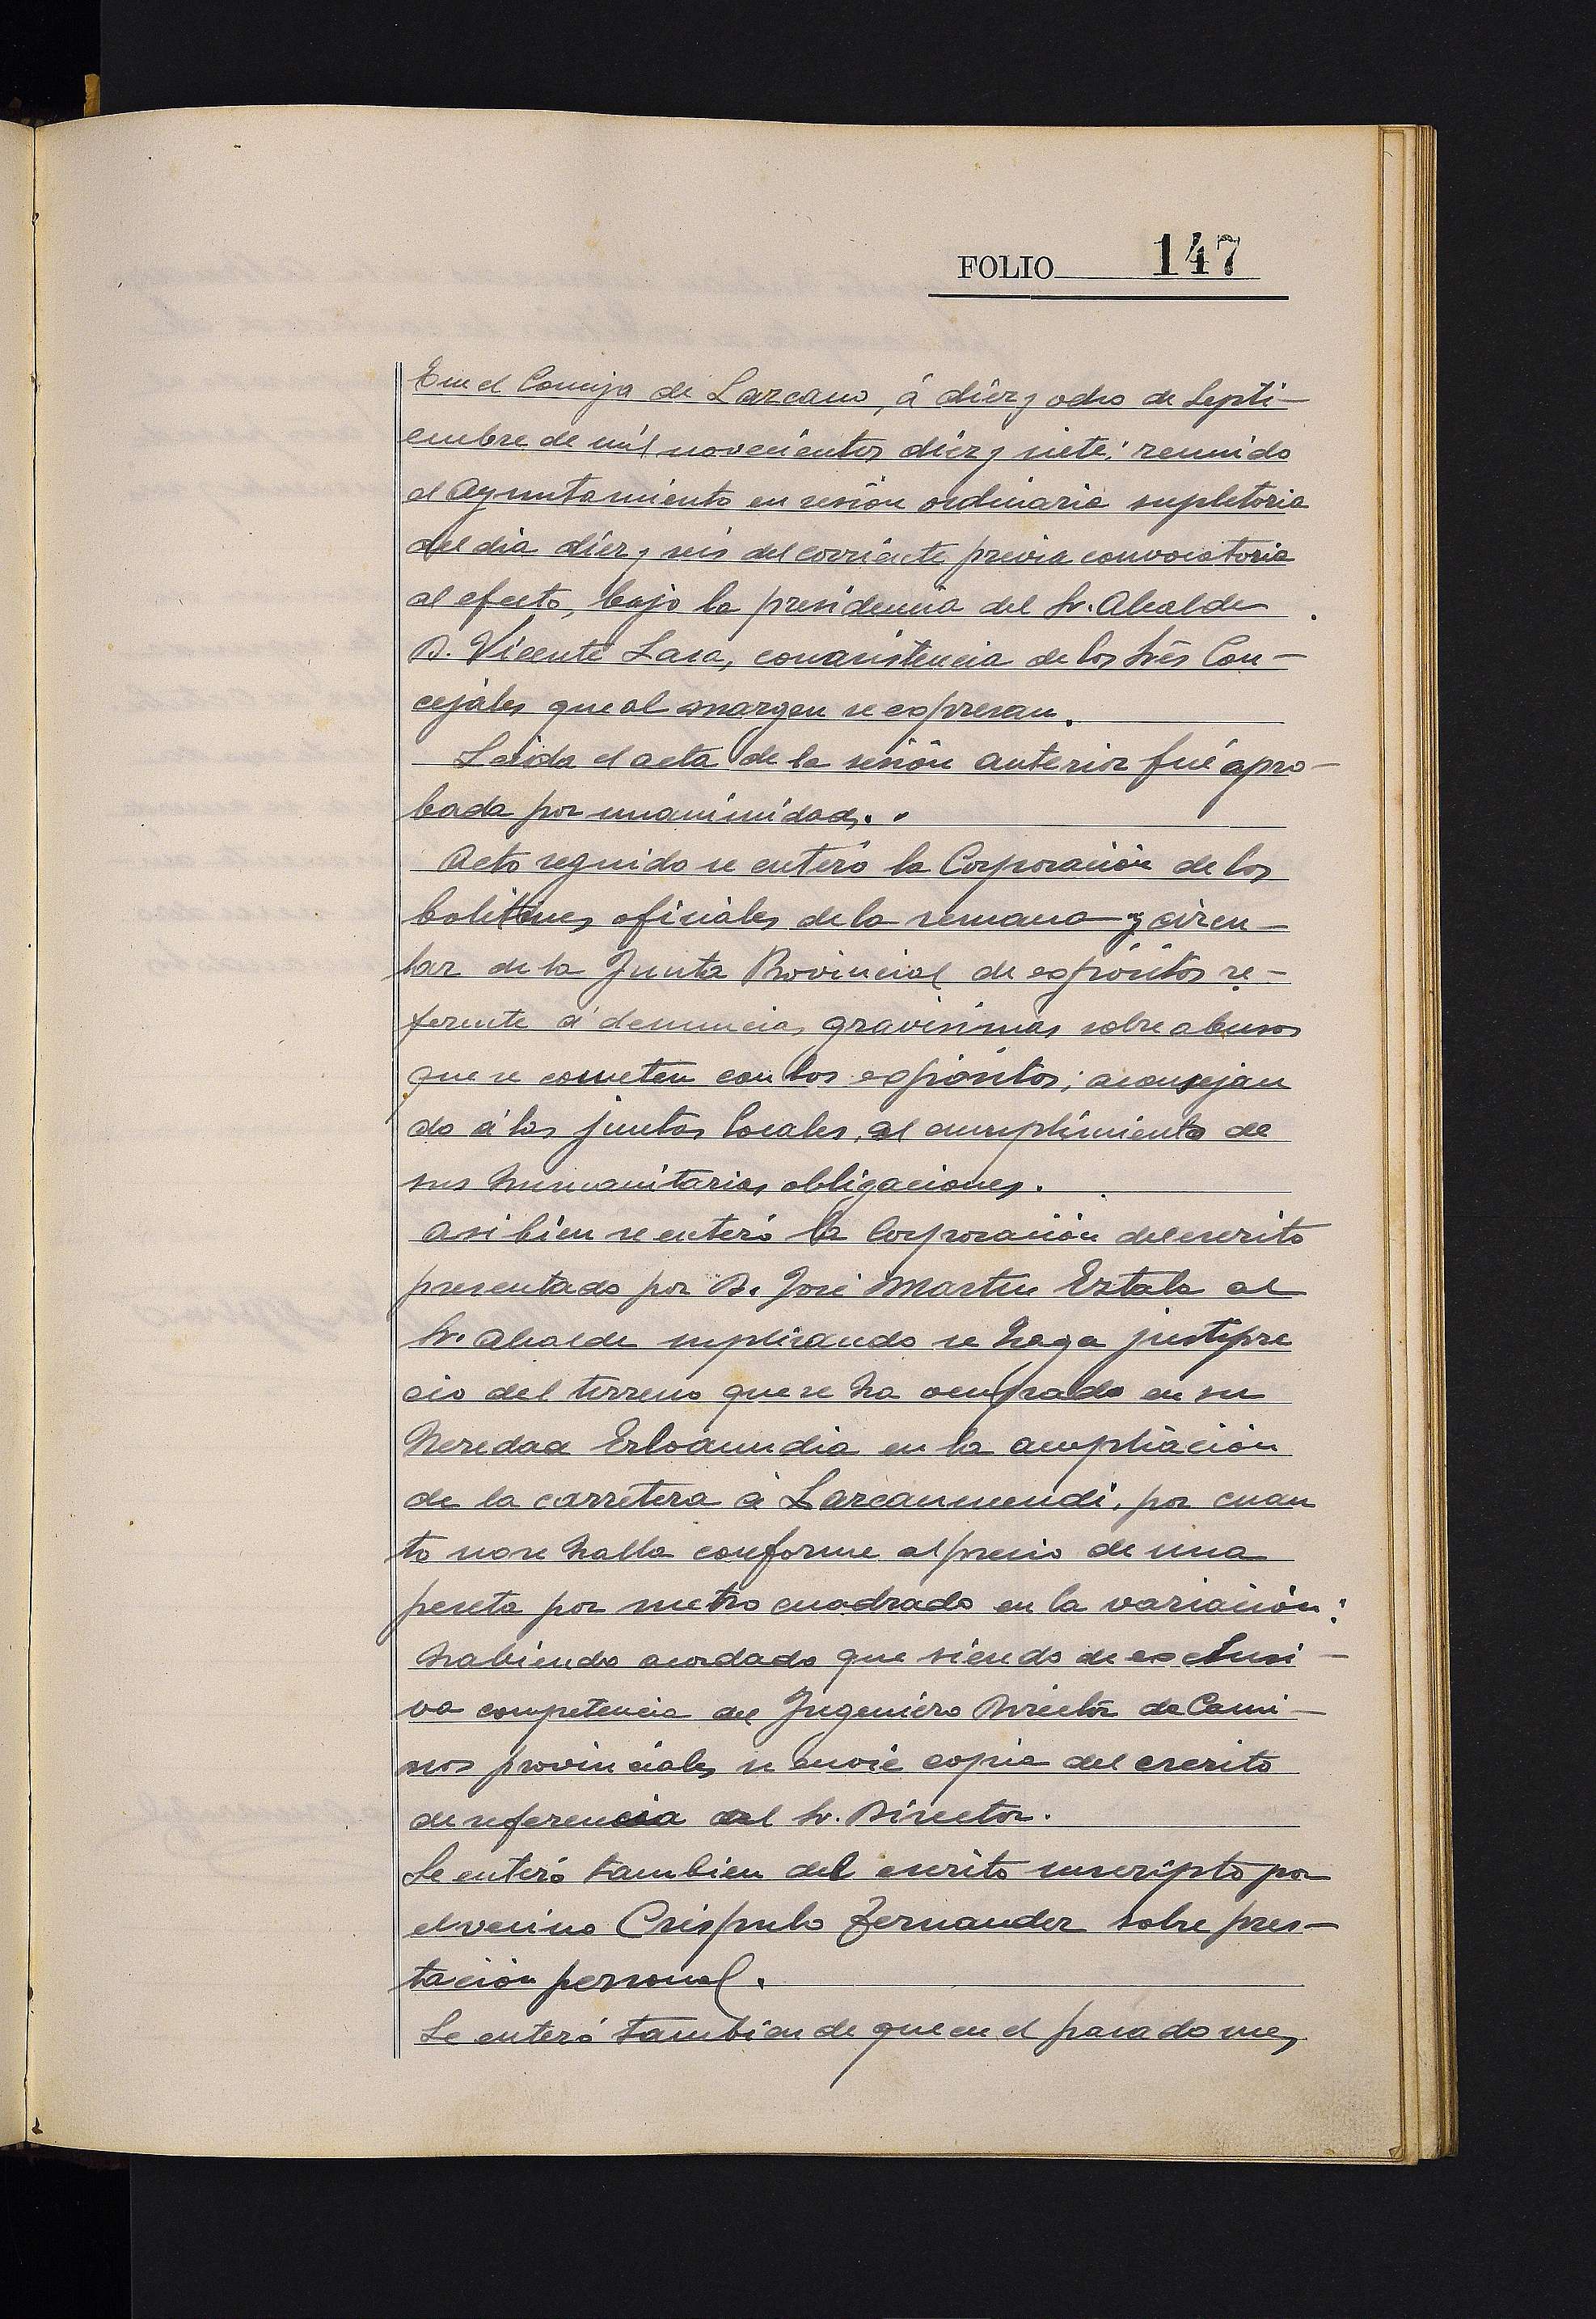 FOLIO 147
En el Concejo de Lazcano, á diez y ocho de Septi-
embre de mil novecientos diez y siete; reunido
el Ayuntamiento en sesión ordinaria supletoria
del dia diez y seis del corriente previa convocatoria
al efecto, bajo la presidencia del Sr. Alcalde
D. Vicente Lasa, con asistencia de los Srés Con-
cejáles que al margen se expresan.
Leida el acta de la sesión anterior fué apro-
bada por unanimidad.
Acto seguido se enteró la Corporación de los
bolitines oficiales de la semana y circu-
lar de la Junta Provincial de expósitos re-
ferente á denuncias gravisimas sobre abusos
que se cometen con los expósitos; aconsejan
do á las juntas locales, al cumplimiento de
sus humanitarias obligaciones.
Asi bien se enteró la Corporación del escrito
presentado por D. José Martin Eztala al
Sr. Alcalde suplicando se haga justipre
cio del terreno que se ha ocupado en su
heredad Erloaundia en la ampliación
de la carretera á Lazcanmendi, por cuan
to no se halla conforme al precio de una
peseta por metro cuadrado en la variación:
habiendo acordado que siendo de exclusi-
va competencia del Ingeniero Director de Cami-
nos provinciales se envie copia del escrito
de referencia al Sr. Director.
Se enteró tambien del escrito suscripto por
el vecino Crispulo Fernandez sobre pres-
tación personal.
Se enteró tambien de que en el pasado mes